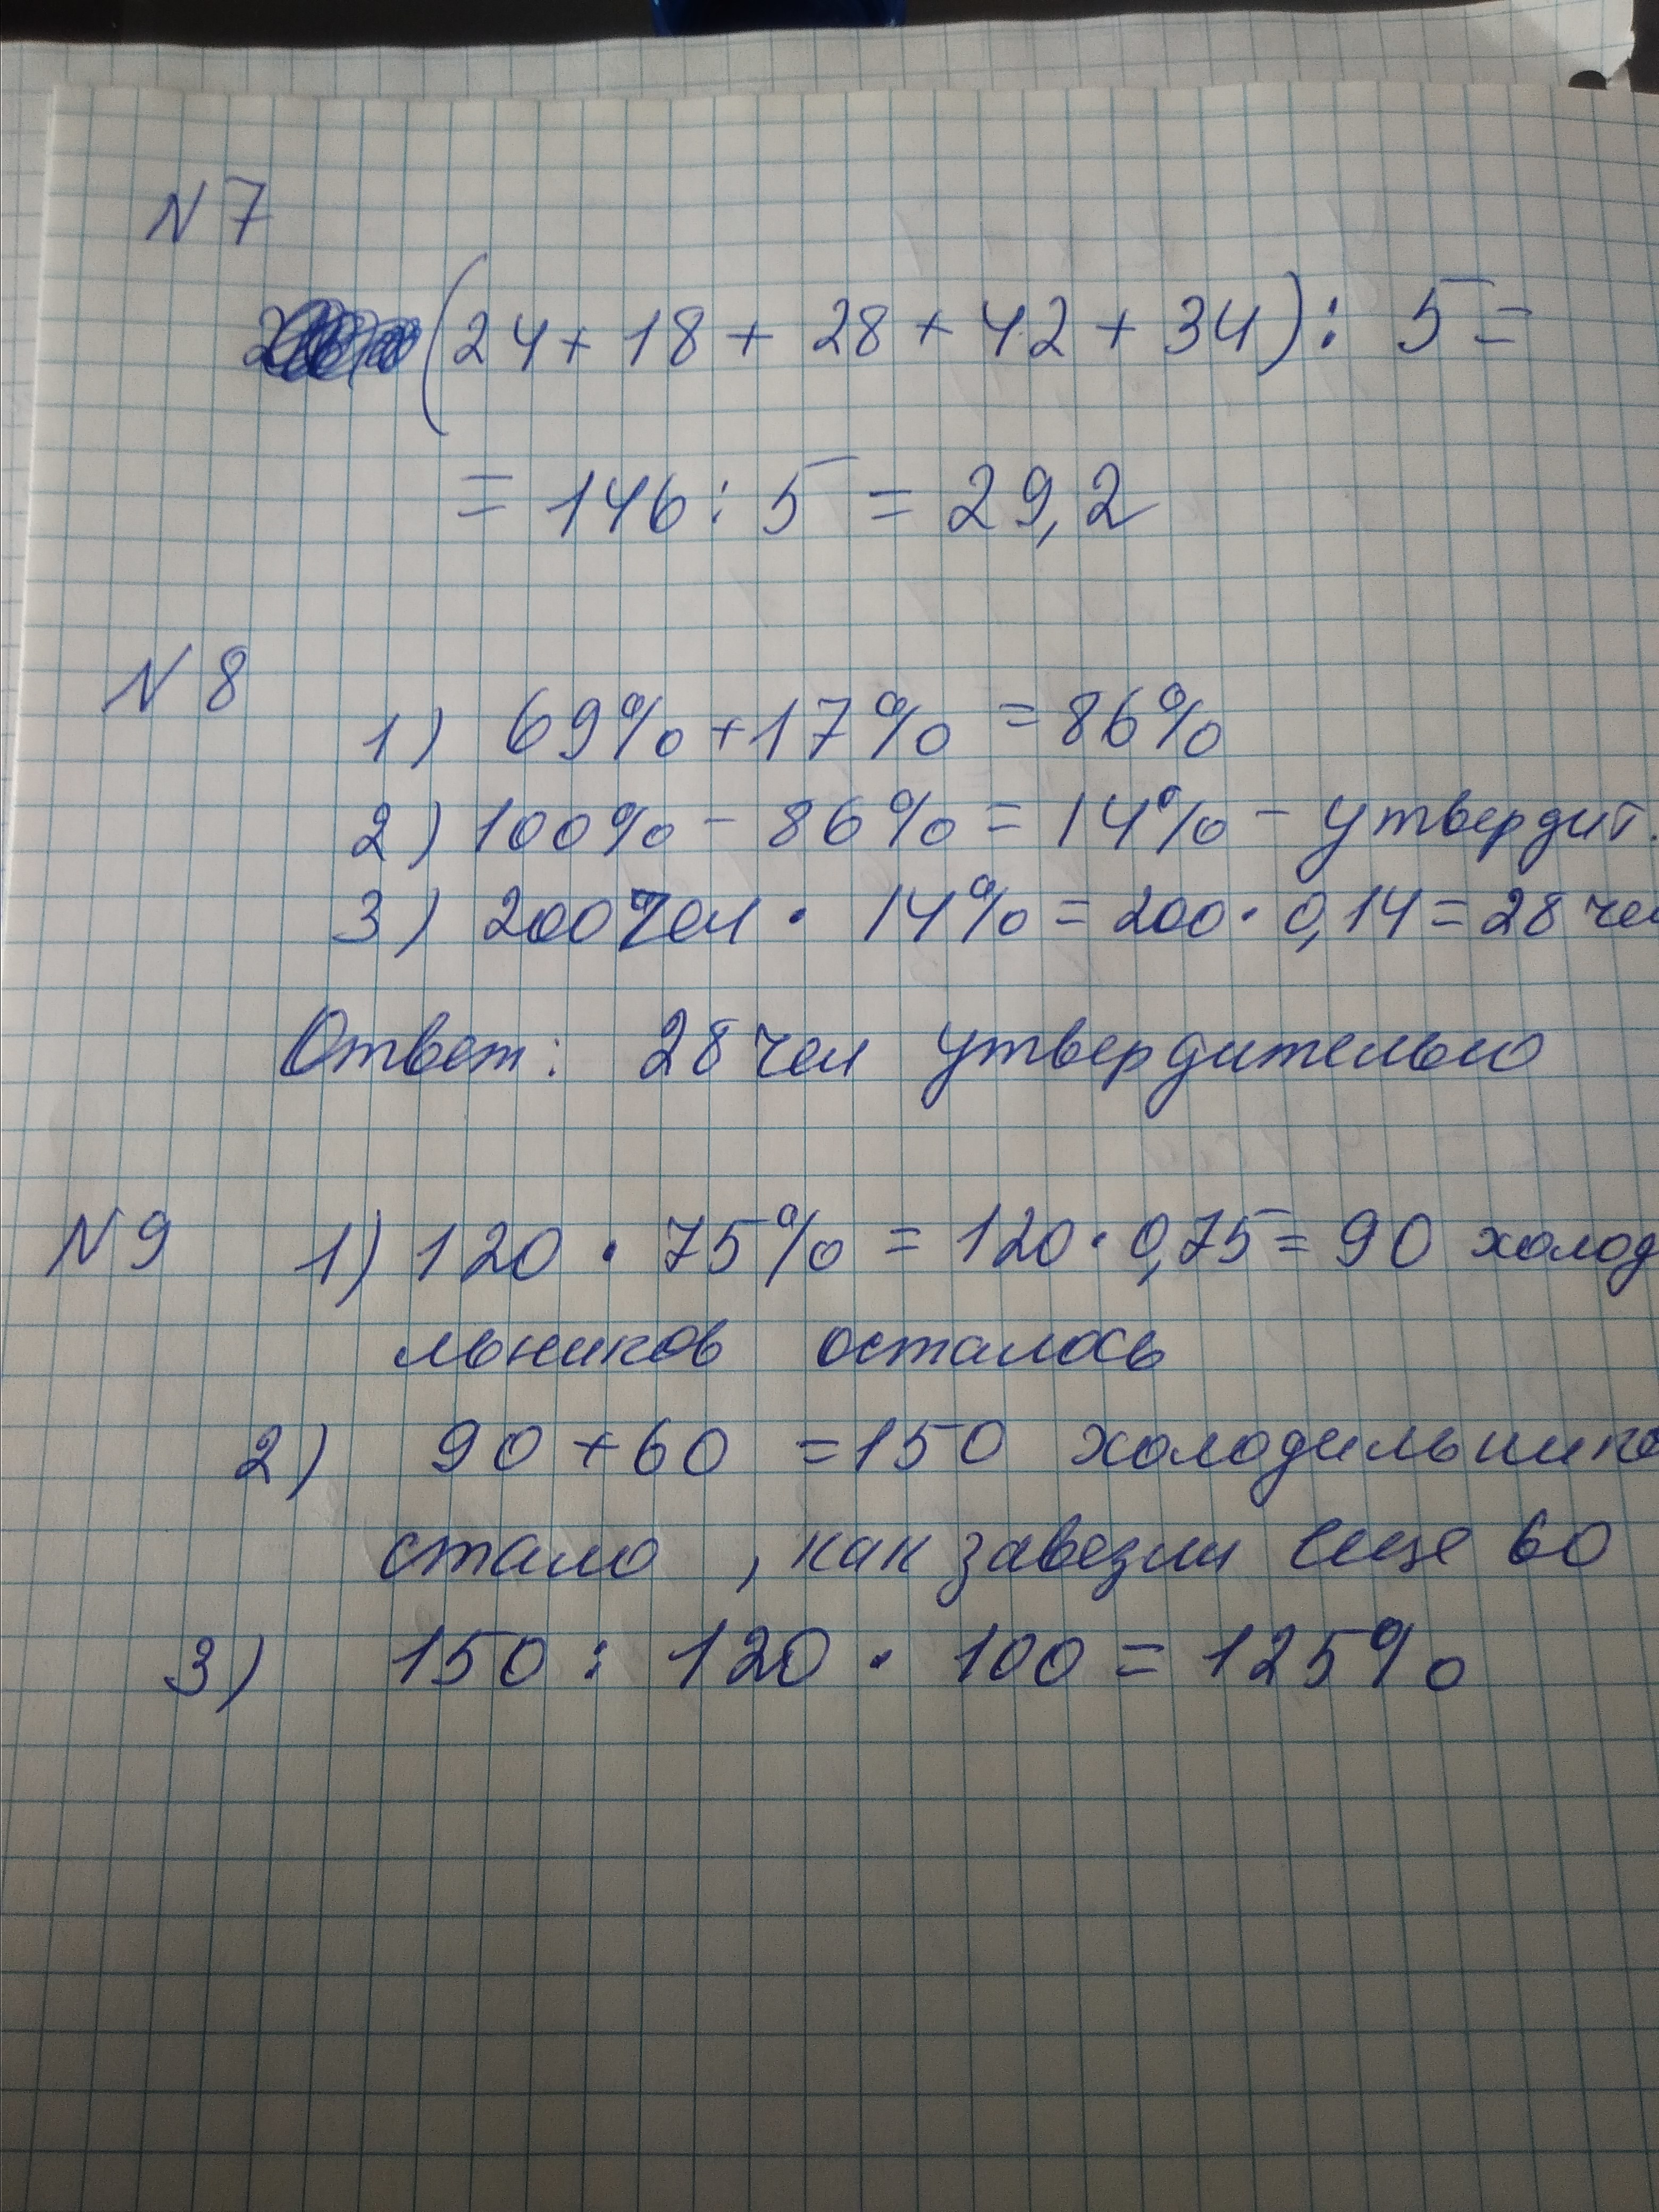 N 7
(24 + 18 + 28 + 42 + 34) : 5 =
= 146 : 5 = 29,2
N 8
1) 69% + 17% = 86%
2) 100% - 86% = 14% - утвердит.
3) 200 чел · 14% = 200 · 0,14 = 28 чел
Ответ: 28 чел утвердительно
N 9 1) 120 · 75% = 120 · 0,75 = 90 холод
льников осталось
2) 90 + 60 = 150 холодильнико
стало, как завезли еще 60
3) 150 : 120 · 100 = 125%